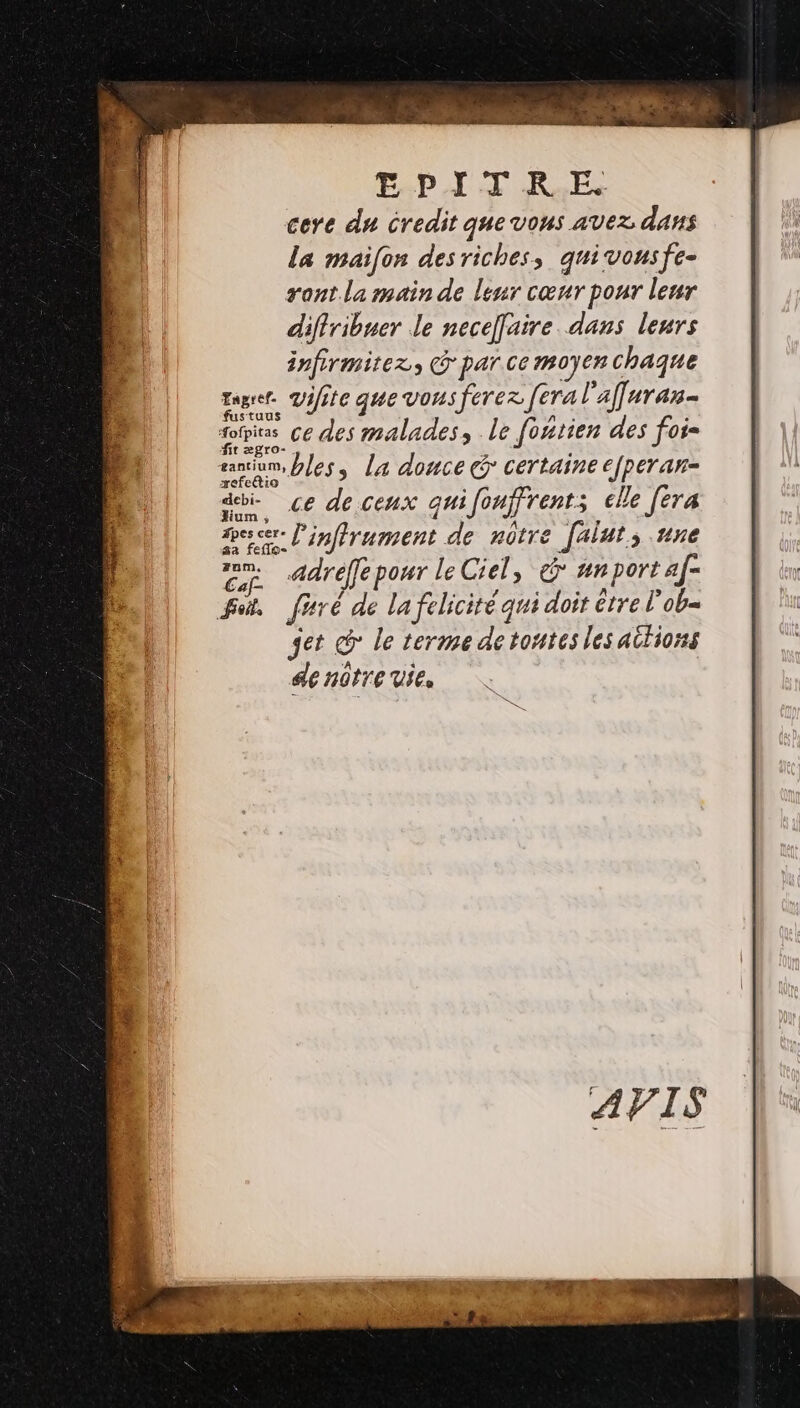 EPITRE.
cere du credit que vous avez dans
la maiſon des riches, qui vous fe-
ront la main de leur cœur pour leur
diſtribuer le neceſſaire dans leurs
infirmitez, & par ce moyen chaque
viſite que vous ferez ſera l'aſſuran-
ce des malades, le ſoûtien des foi-
bles, la douce & certaine eſperan-
ce de ceux qui ſouffrent; elle ſera
l'inſtrument de nôtre ſalut, une
adreſſe pour le Ciel, & un port aſ-
ſuré de la felicité qui doit être l'ob-
jet & le terme de toutes les actions
de nôtre vie.
Tagreſ-
ſus tuus
ſoſpitas
ſit ægro-
tantium,
refectio
debi-
lium,
ſpes cer-
ta feſſo-
rum.
Caſ-
ſiod.
AVIS